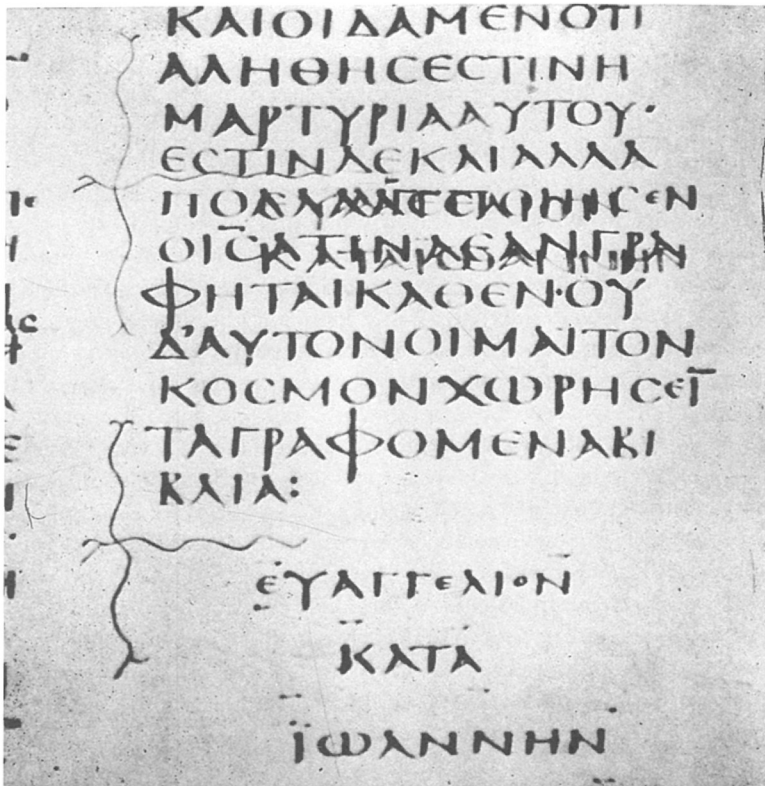 ΚΑΙΟΙΔΑΜΕΝΟΤΙ
ΑΛΗΘΗCΕCΤΙΝΗ
ΜΑΡΤΥΡΙΑΑΥΤΟΥ·
ΕCΤΙΝΔΕΚΑΙΑΛΛΑ
ΠΟΛΛΑΑΕΠΟΙΗCΕΝ
ΟΙ̅C̅ΑΤΙΝΑΕΑΝΓΡΑ
ΦΗΤΑΙΚΑΘΕΝ·ΟΥ
Δ’ΑΥΤΟΝΟΙΜΑΙΤΟΝ
ΚΟCΜΟΝΧΩΡΗCΕΙ̅
ΤΑΓΡΑΦΟΜΕΝΑΒΙ
ΒΛΙΑ:
ΕΥΑΓΓΕΛΙΟΝ
ΚΑΤΑ
ΪΩΑΝΝΗΝ